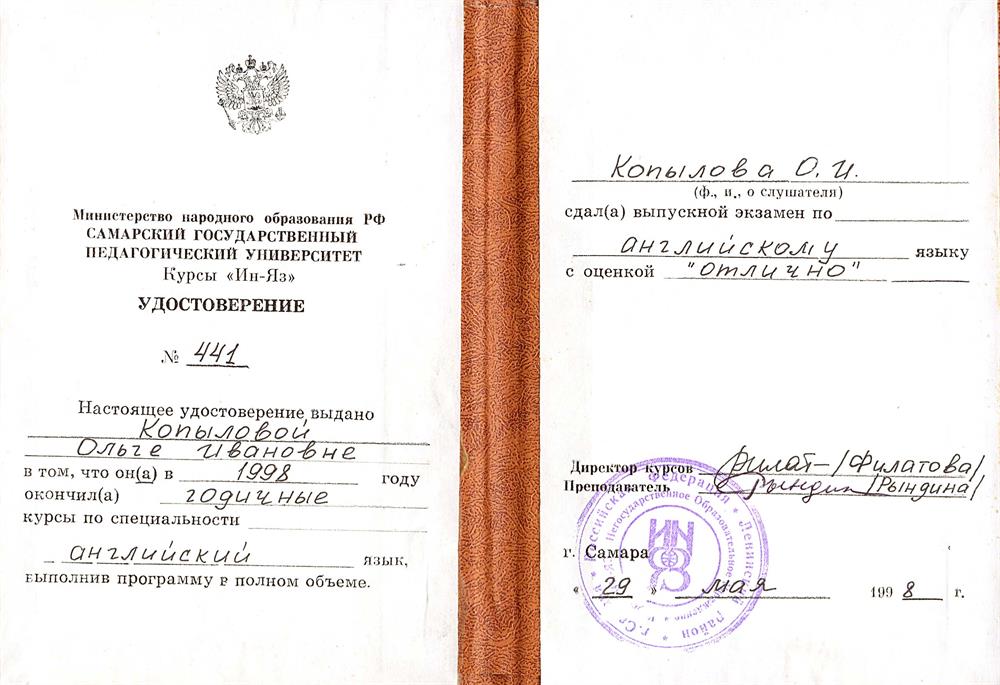 Министерство народного образования РФ
САМАРСКИЙ ГОСУДАРСТВЕННЫЙ
ПЕДАГОГИЧЕСКИЙ УНИВЕРСИТЕТ
Курсы «Ин-Яз»
УДОСТОВЕРЕНИЕ
№ 441
Настоящее удостоверение выдано
Копыловой
Ольге Ивановне
в том, что он(а) в 1998 году
окончил(а) годичные
курсы по специальности
английский язык,
выполнив программу в полном объеме.
Копылова О.И.
(ф., и., о слушателя)
сдал(а) выпускной экзамен по
английскому языку
с оценкой "отлично"
Директор курсов Филат- /Филатова/
Преподаватель Рындин /Рындина/
г. Самара
« 29 » мая 1998 г.
Российская Федерация * Ленинский район * г.
Негосударственное Образовательное
ИН
ЯЗ